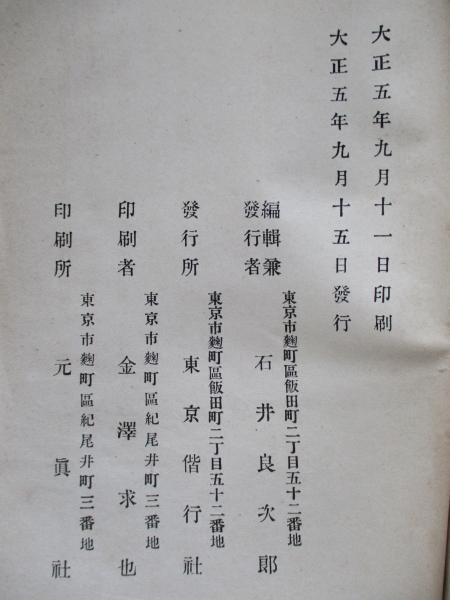 大正五年九月十一日印刷
大正五年九月十五日發行
編輯兼
發行者
東京市麴町區飯田町二丁目五十二番地
石井良次郎
發行所
東京市麴町區飯田町二丁目五十二番地
東京偕行社
印刷者
東京市麴町區紀尾井町三番地
金澤求也
印刷所
東京市麴町區紀尾井町三番地
元眞社